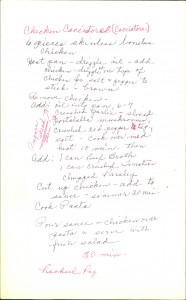 Chicken Caccistored (Cacciatore)
6 pieces skinless boneless
Chicken
Heat pan - drizzle oil - add
chicken - drizzle on tops of
chicken for salt & pepper to
stick - brown
Remove chicken -
Add: oil into pan 6-7
crushed garlic - sliced
portabella mushrooms
crushed red pepper &
salt - cook
heat 10 min. then
Add: 1 can Beef Broth
1 can crushed tomatoes
chopped Parsley
Cut up chicken - add to
sauce - simmer 20 min
Cook Pasta
Pour sauce & chicken over
pasta & serve with
fresh salad
30 min.
Rachael Ray